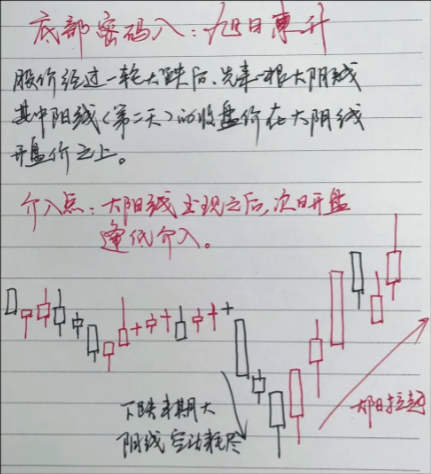 底部密码八：旭日東升
股价经过一轮大跌后、先来一根大阴线
其中阳线(第二天)的收盘价在大阴线
开盘价之上。
介入点：大阳线出现之后，次日开盘
逢低介入。
下跌末期大
阴线空动耗尽
大阳拉起